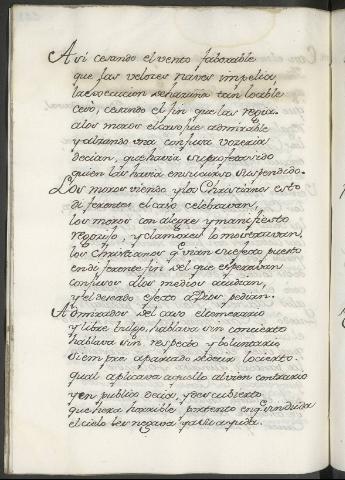 Asi cesando el viento faborable
que las velozes naves impelia,
la execucion
ceso, cesando el fin que las regia.
a los moros el caso fue admirable
y alzando una confusa vozeria
decian, que havia su profeta sido
quien las havia en su curso suspendido.
Los moros viendo y los Christianos esto
diferentes el caso celebravan,
los moros con alegre y manifiesto
regozijo, y clamores lo mostravan,
los Christianos q vian su efeto puesto
en diferente fin del que esperavan
confusos a los medios acudian,
y el deseado efeto a Dios pedian.
Admirados del caso el temerario
y libre bulgo, hablava sin concierto
hablava sin respecto y boluntario
siempre apartado de decir lo cierto.
qual aplicava aquello al bien contrario
y en publico decia, y descubierto
que hera horrible portento en q
el cielo les negava ya su ayuda.